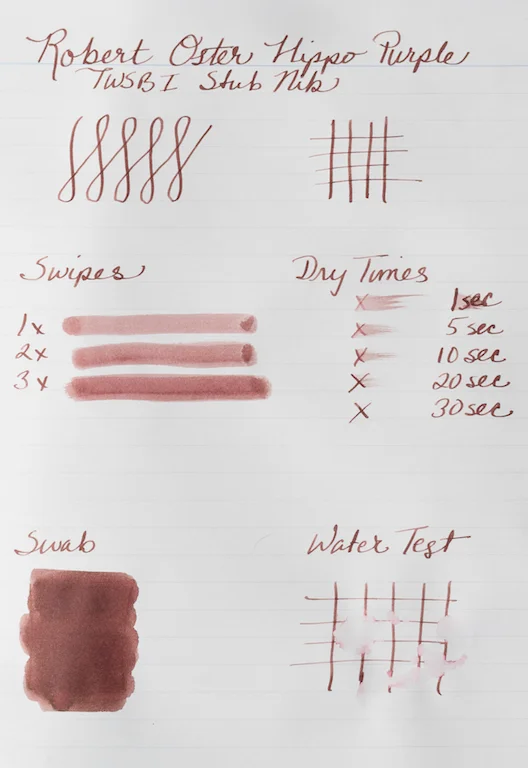 Robert Oster Hippo Purple
TWSBI Stub Nib
Swipes
1x
2x
3x
Dry Times
x 1sec
x 5 sec
x 10 sec
x 20 sec
x 30 sec
Swab
Water Test